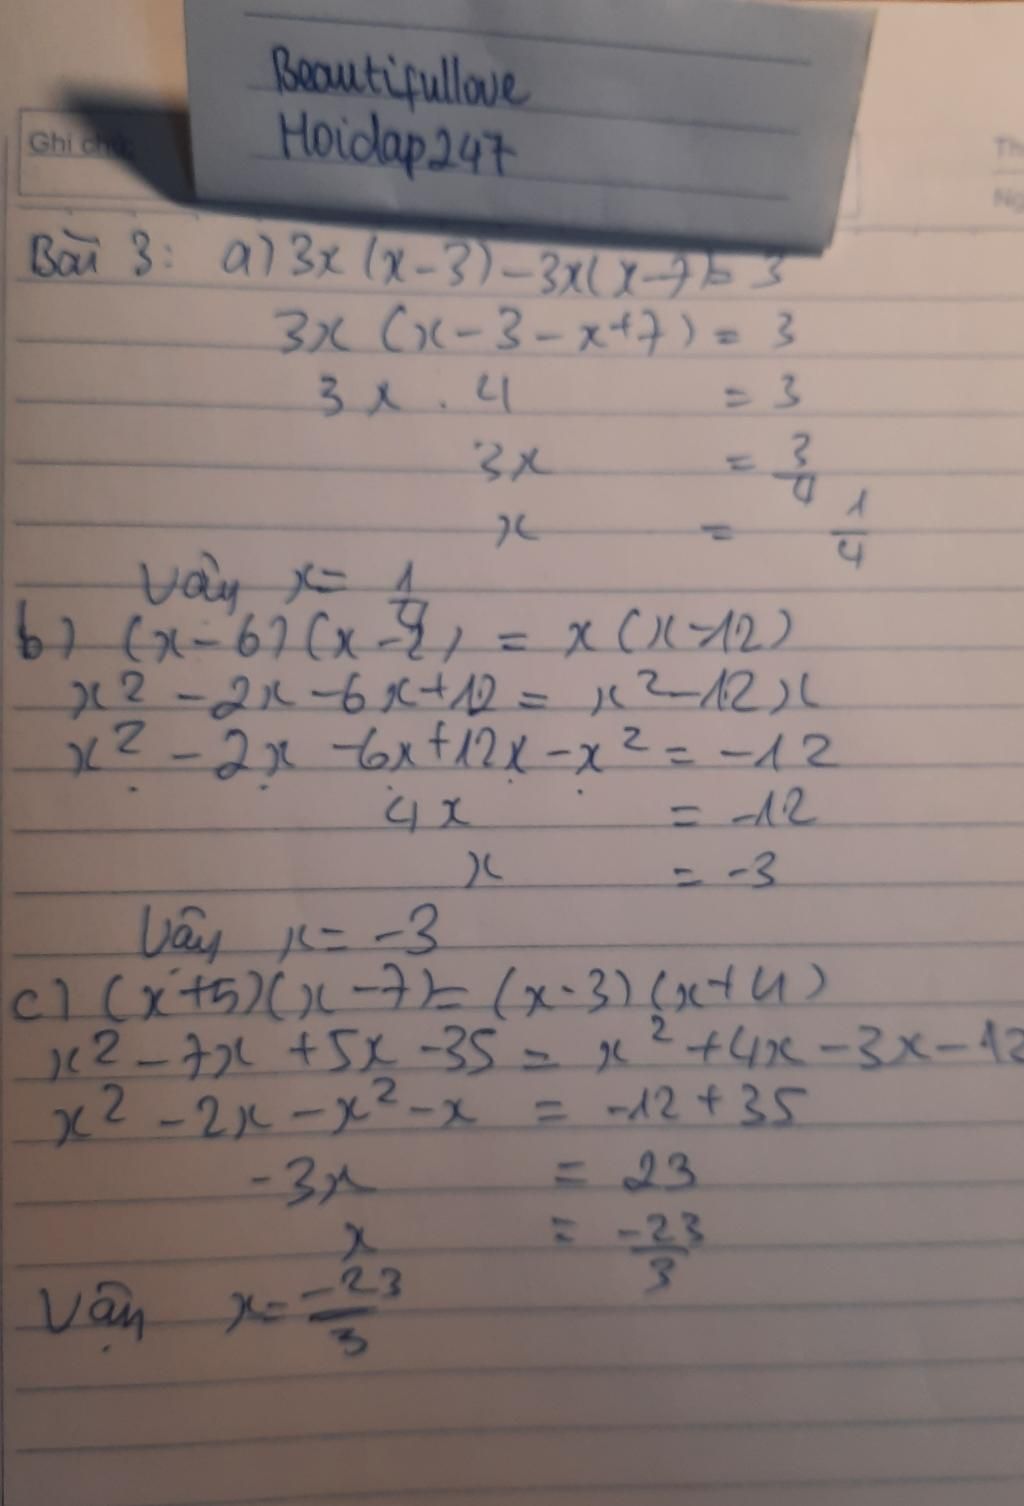 Beautifullove
Hoidap247
Ghi chú:
Th
Ng
Bài 3: a) 3x (x - 3) - 3x (x - 7) = 3
3x (x - 3 - x + 7) = 3
3x . 4 = 3
3x = 3/4
x = 1/4
Vậy x = 1/4
b) (x - 6) (x - 2) = x (x - 12)
x² - 2x - 6x + 12 = x² - 12x
x² - 2x - 6x + 12x - x² = -12
4x = -12
x = -3
Vậy x = -3
c) (x + 5) (x - 7) = (x - 3) (x + 4)
x² - 7x + 5x - 35 = x² + 4x - 3x - 12
x² - 2x - x² - x = -12 + 35
-3x = 23
x = -23/3
Vậy x = -23/3